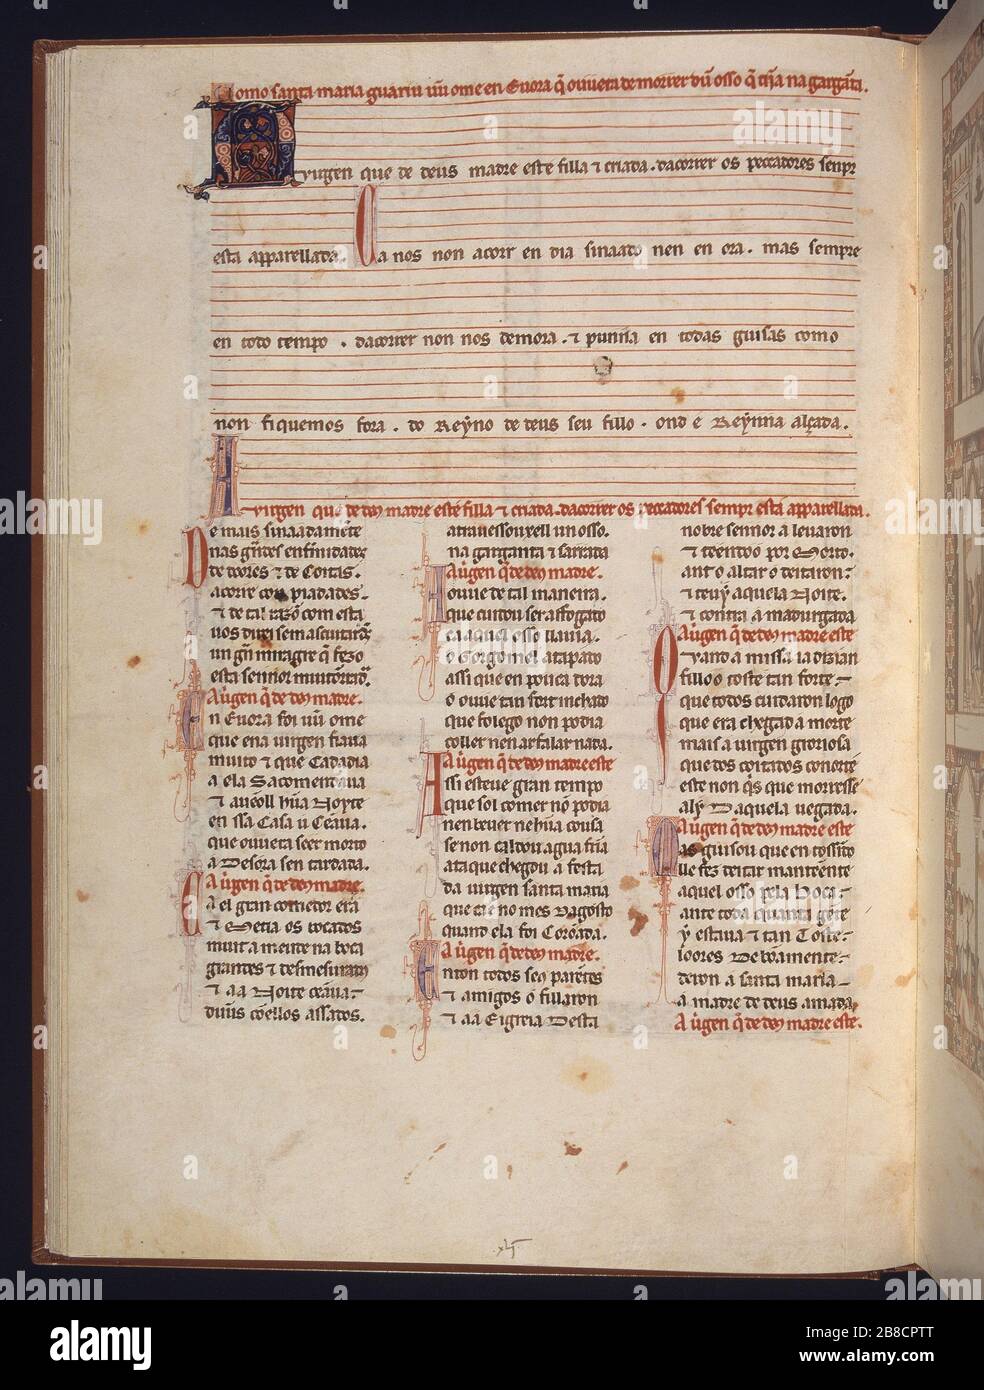 Como santa maria guariu ũu ome en Euora q̃ ouuera de morrer dũ osso q̃ trια na gargãta.
A uirgen que de deus madre este filla ⁊ criada. dacorrer os peccadores senpr
esta apparellada. Ca nos non acorr en dia sinaado nen en ora. mas sempre
en todo tempo. dacorrer non nos demora. ⁊ punna en todas guisas como
non fiquemos fora. do Reyno de deus seu fillo. ond e Reynna alçada.
A uirgen que de deus madre este filla ⁊ criada. dacorrer os peccadores sempr esta apparellada.
De mais sinaadamẽte
nas grãdes enfirmidades
de doores ⁊ de Coitas.
acorre con piadades.
⁊ de tal razõ com esta
uos direi se mascuitardes
un grã miragre q̃ fezo
esta sennor muitõrrada.
A uirgen q̃ de deus madre.
En Euora foi ũu ome
que ena uirgen fiaua
muito ⁊ que Cada dia
a ela Sacomendaua
⁊ aueoll hũa Noyte
en ssa Casa u Cẽaua.
que ouuera seer morto
a Desora sen tardada.
A uirgen q̃ de deus madre.
Ca el gran comedor era
⁊ Metia os bocados
muit ameude na boca
grandes ⁊ desmesurados
⁊ aa Noite cẽaua
dũus cõellos assados.
atrauessouxell un osso.
na garganta ⁊ sarrada
A uirgen q̃ de deus madre.
A ouue de tal maneira.
que cuidou ser affogado
ca aquel osso llauia.
o Gorgomel atapado
assi que en pouca dora
o ouue tan fort inchado
que folego non podia
coller nen ar falar nada.
A uirgen q̃ de deus madre este
Assi esteue gran tempo
que sol comer nõ podia
nen beuer nehũa cousa
se non caldou agua fria
ata que chegou a festa
da uirgen santa maria
que cae no mes Dagosto
quand ela foi Corõada.
A uirgen q̃ de deus madre.
Enton todos seus parẽtes
⁊ amigos o fillaron
⁊ aa Eigreia Desta
nobre sennor a leuaron
⁊ teendoo por Morto.
ant o altar o deitaron
⁊ teuy aquela Noite.
⁊ contra a madurgada
A uirgen q̃ de deus madre este
O y and a missa ia dizian
filloo coste tan forte
que todos cuidaron logo
que era chegad a morte
mais a uirgen groriosa
que dos coitados conorte
este non q̃s que morresse
aly Daquela uegada.
A uirgen q̃ de deus madre este
Mas guisou que en tossindo
lle fez deitar mantẽente
aquel osso pela Boca
ante toda quanta gẽte
y estaua ⁊ tan Toste
loores De bõamente
deron a santa maria
a madre de deus amada
A uirgen q̃ de deus madre este.
alamy
Image ID: 2B8CPTT
www.alamy.com